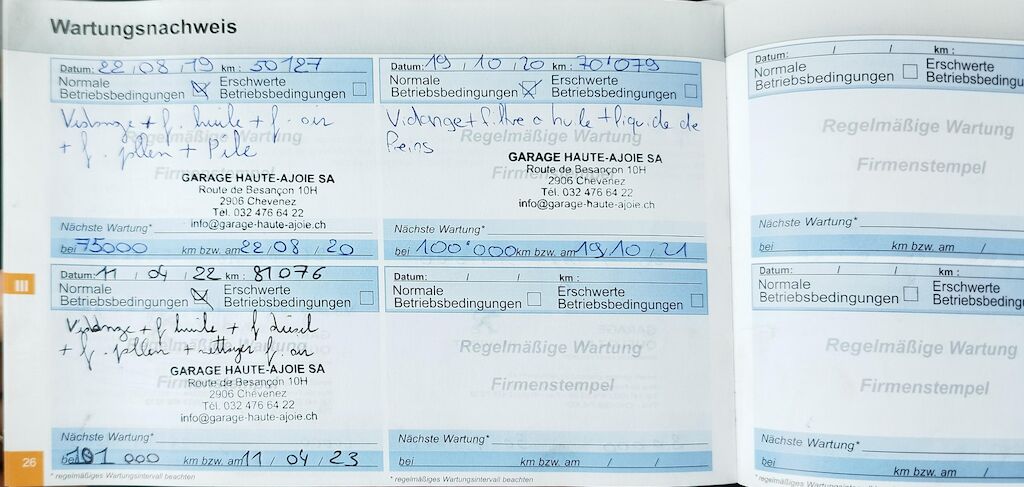 Wartungsnachweis
Datum: 22 / 08 / 19 km : 50127
Normale Betriebsbedingungen
Erschwerte Betriebsbedingungen
Vidange + f. huile + f. air
+ f. pollen + Pile
Regelmäßige Wartung
Firmenstempel
GARAGE HAUTE-AJOIE SA
Route de Besançon 10H
2906 Chevenez
Tél. 032 476 64 22
info@garage-haute-ajoie.ch
Nächste Wartung*
bei 75000 km bzw. am 22/08 / 20
Datum: 19 / 10 / 20 km : 70'079
Normale Betriebsbedingungen
Erschwerte Betriebsbedingungen
Vidange + filtre a huile + liquide de
freins
Regelmäßige Wartung
Firmenstempel
GARAGE HAUTE-AJOIE SA
Route de Besançon 10H
2906 Chevenez
Tél. 032 476 64 22
info@garage-haute-ajoie.ch
Nächste Wartung*
bei 100'000 km bzw. am 19/10 / 21
Datum: 11 / 04 / 22 km : 81076
Normale Betriebsbedingungen
Erschwerte Betriebsbedingungen
Vidange + f huile + f diesel
+ f. pollen + nettoyer f. air
GARAGE HAUTE-AJOIE SA
Route de Besançon 10H
2906 Chevenez
Tél. 032 476 64 22
info@garage-haute-ajoie.ch
Nächste Wartung*
bei 101 000 km bzw. am 11 / 04 / 23
* regelmäßiges Wartungsintervall beachten
Datum: / / km :
Normale Betriebsbedingungen
Erschwerte Betriebsbedingungen
Regelmäßige Wartung
Firmenstempel
Nächste Wartung*
bei km bzw. am / /
* regelmäßiges Wartungsintervall beachten
III
26
Datum: / / km :
Normale Betriebsbedingungen
Erschwerte
Regelmäßige Wartung
Firmenstempel
Nächste Wartung*
bei km bzw. am /
Datum: / / km :
Normale Betriebsbedingungen
Erschwerte
Regelmäßige Wartung
Firmenstempel
Nächste Wartung*
bei km bzw. am / /
* regelmäßiges Wartungsintervall beachten